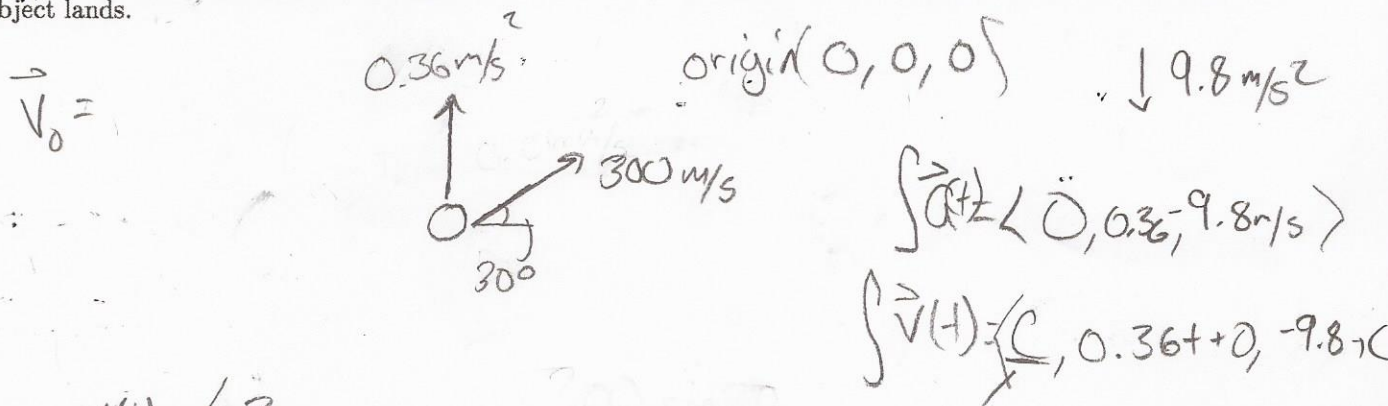 bject lands.
0.36 m/s²
origin(0,0,0)
↓ 9.8 m/s²
V⃗₀ =
300 m/s
30°
∫a⃗(t)=⟨0, 0.36, -9.8m/s⟩
∫v⃗(t)=⟨C, 0.36t+0, -9.8